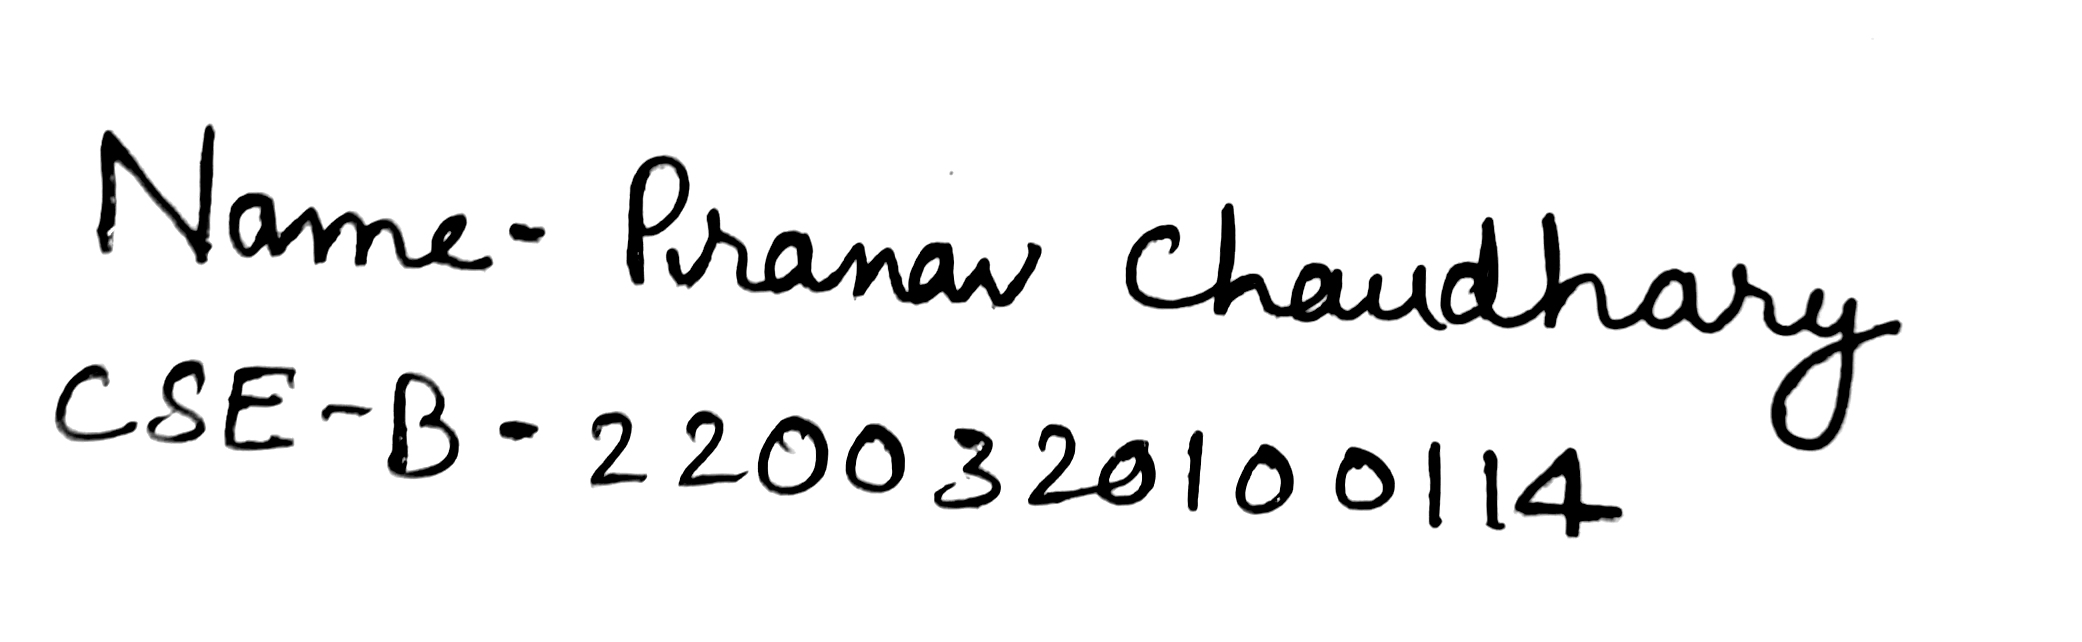 Name- Pranav Chaudhary
CSE-B-2200320100114